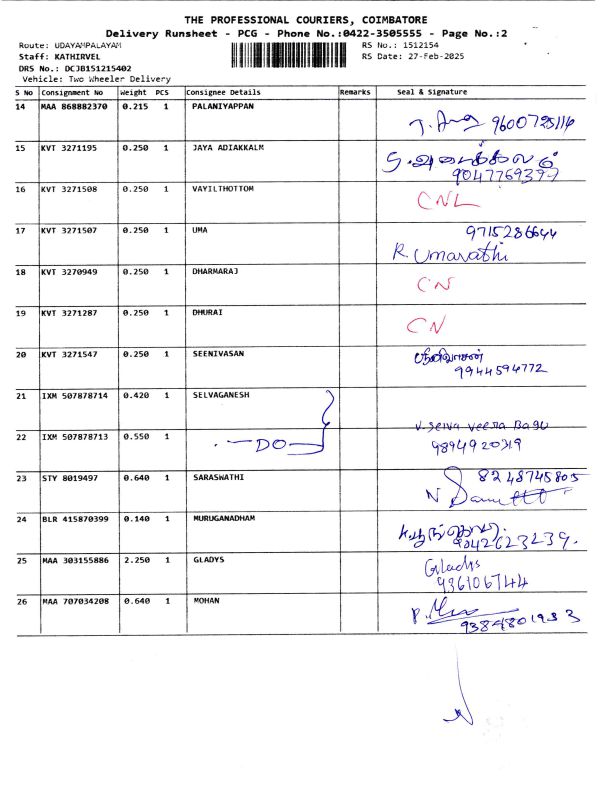 THE PROFESSIONAL COURIERS, COIMBATORE
Delivery Runsheet - PCG - Phone No.:0422-3505555 - Page No.:2
Route: UDAYAMPALAYAM RS No.: 1512154
Staff: KATHIRVEL RS Date: 27-Feb-2025
DRS No.: DCJB151215402
Vehicle: Two Wheeler Delivery
S No Consignment No Weight PCS Consignee Details Remarks Seal & Signature
14 MAA 868882370 0.215 1 PALANIYAPPAN
9600725114
15 KVT 3271195 0.250 1 JAYA ADIAKKALM
9047769397
16 KVT 3271508 0.250 1 VAYILTHOTTOM CNL
17 KVT 3271507 0.250 1 UMA 9715286644
R. Umarathi
18 KVT 3270949 0.250 1 DHARMARAJ CN
19 KVT 3271287 0.250 1 DHURAI CN
20 KVT 3271547 0.250 1 SEENIVASAN
9944594772
21 IXM 507878714 0.420 1 SELVAGANESH
V. Selva Veera Bagu
22 IXM 507878713 0.550 1 -DO- 9894920319
23 STY 8019497 0.640 1 SARASWATHI 8248745805
24 BLR 415870399 0.140 1 MURUGANADHAM
9042623239.
25 MAA 303155886 2.250 1 GLADYS Gladys
936106744
26 MAA 707034208 0.640 1 MOHAN
9384801933